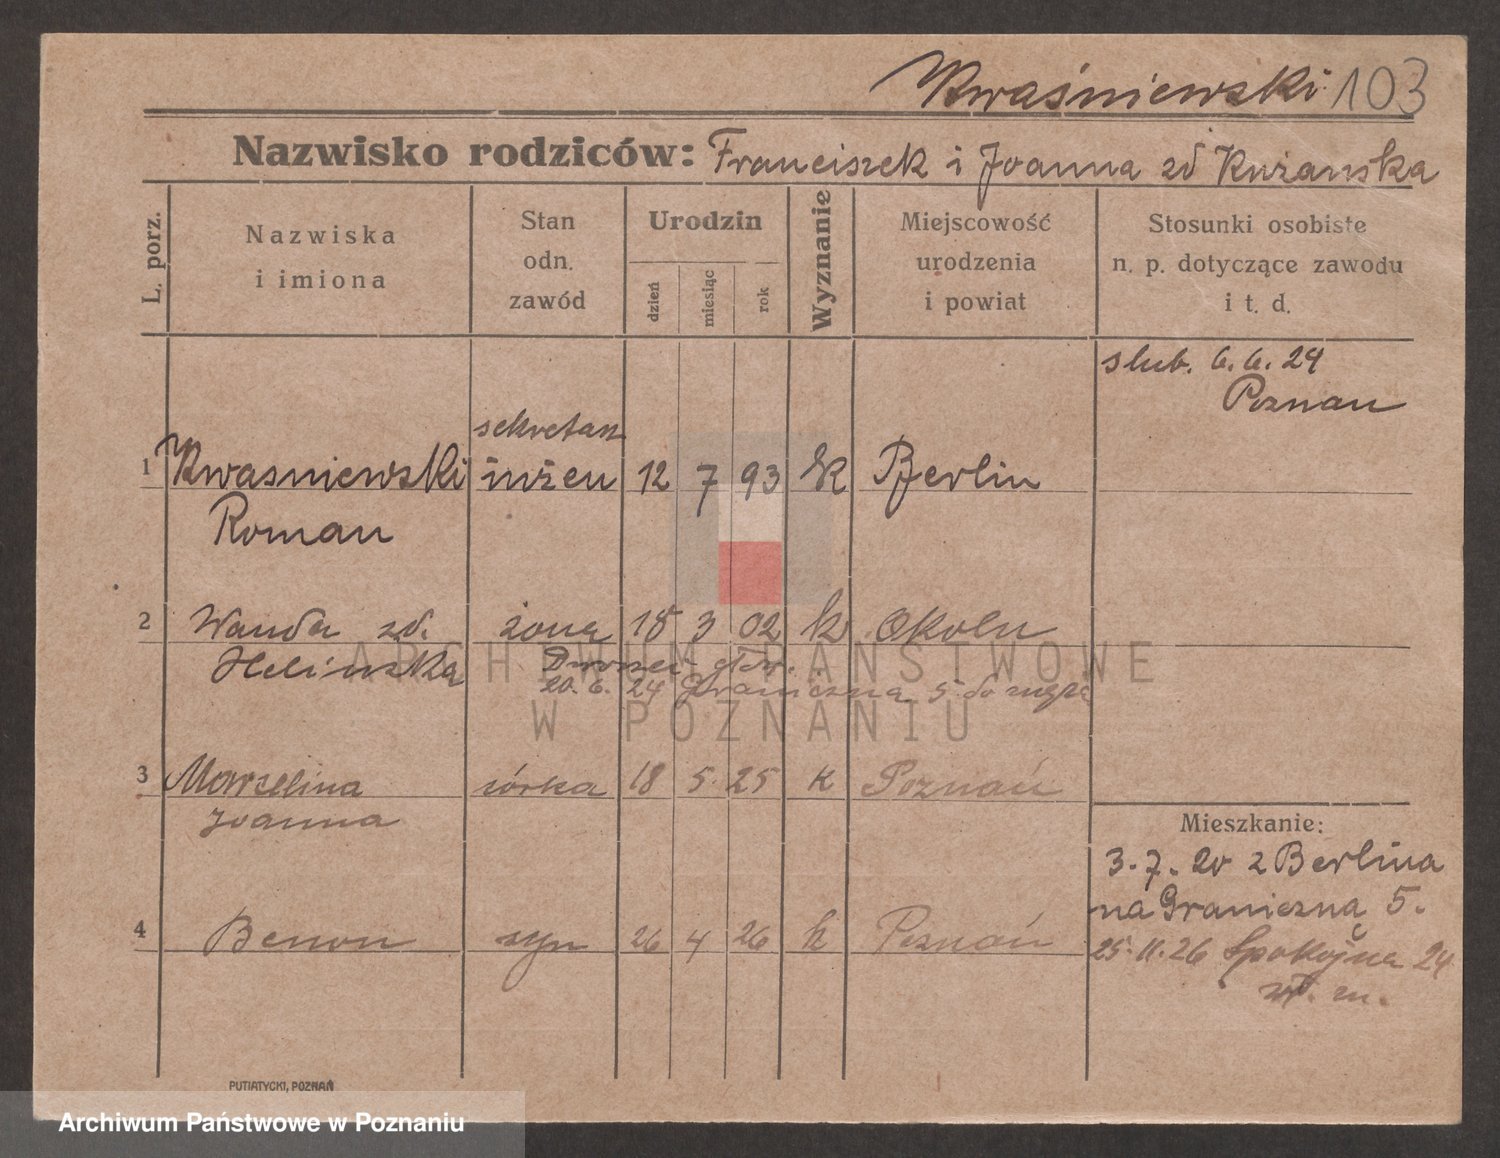 Kwaśniewski 103
Nazwisko rodziców: Franciszek i Joanna zd
L. porz.
Nazwiska
i imiona
Stan
odn.
zawód
Urodzin
dzień
miesiąc
rok
Wyznanie
Miejscowość
urodzenia
i powiat
Stosunki osobiste
n. p. dotyczące zawodu
i t. d.
slub. 6. 6. 24
Poznan
sekretarz
1 Kwasniewski inżen 12 7 93 k Berlin
Roman
2 Wanda zd. żona 18 3 02 k
Helińska
20. 6. 24 Graniczna 5
ARCHIWUM PAŃSTWOWE
W POZNANIU
3 Marzelina córka 18 5 25 k Poznań
Joanna
Mieszkanie:
3. 7. 20 z Berlina
na Graniczną 5.
4 Benon syn 26 4 26 k Poznań
25. 11. 26 Spokojna 24
PUTIATYCKI, POZNAŃ
Archiwum Państwowe w Poznaniu